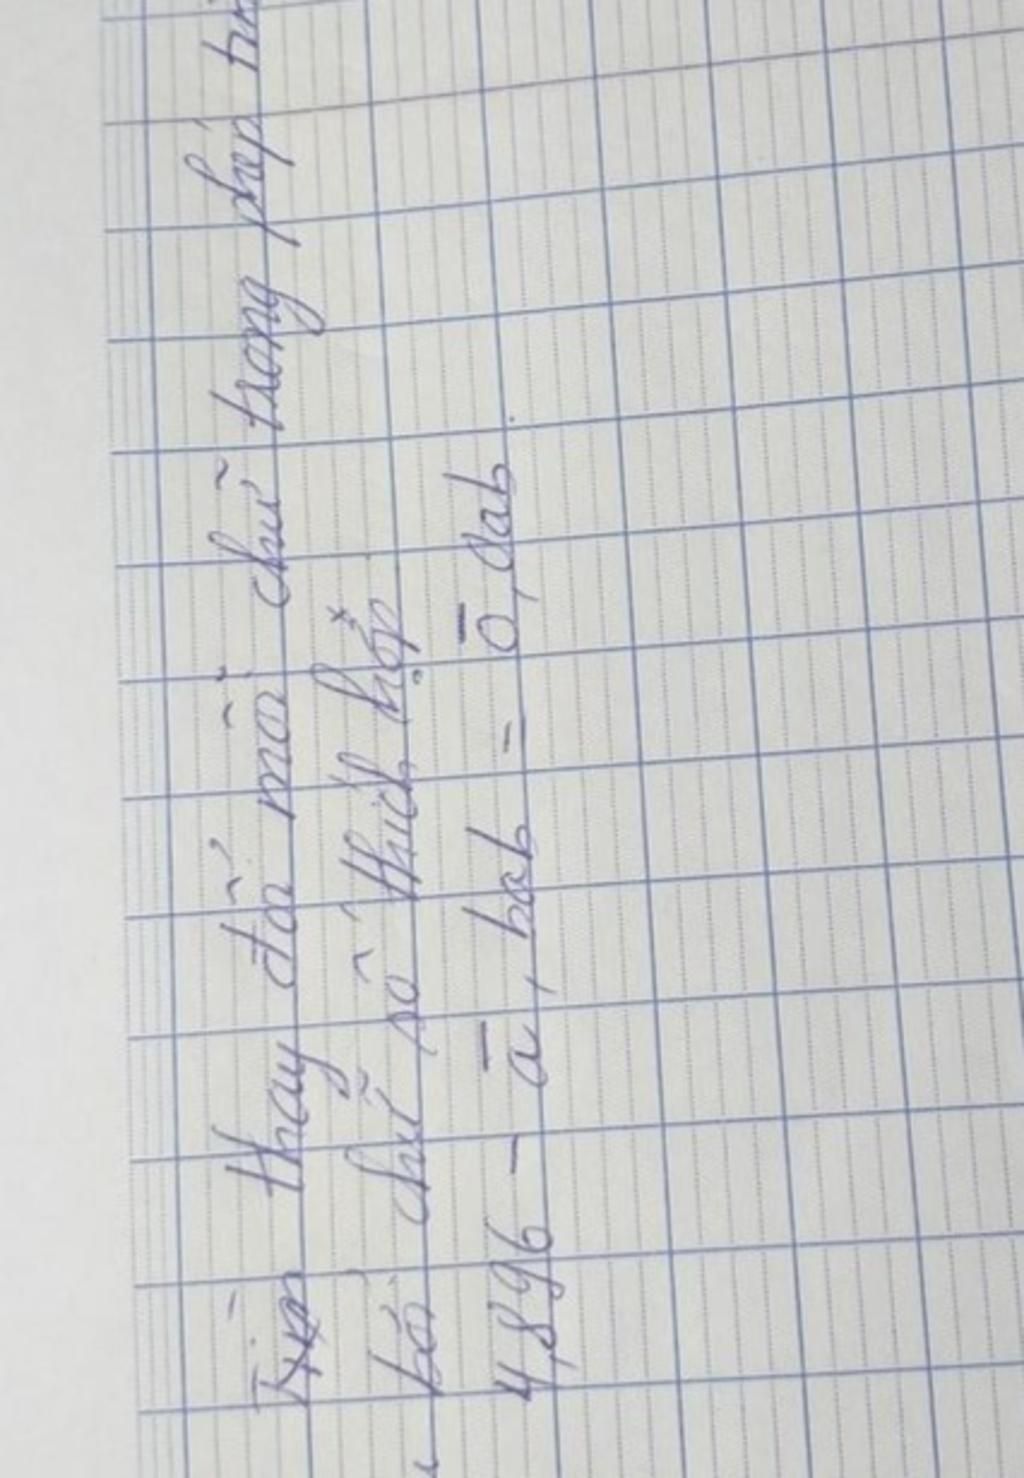 Tìm thay đổi mỗi chữ trong phép
bởi chữ số thích hợp
4,896 - a̅, bab = o̅, dab